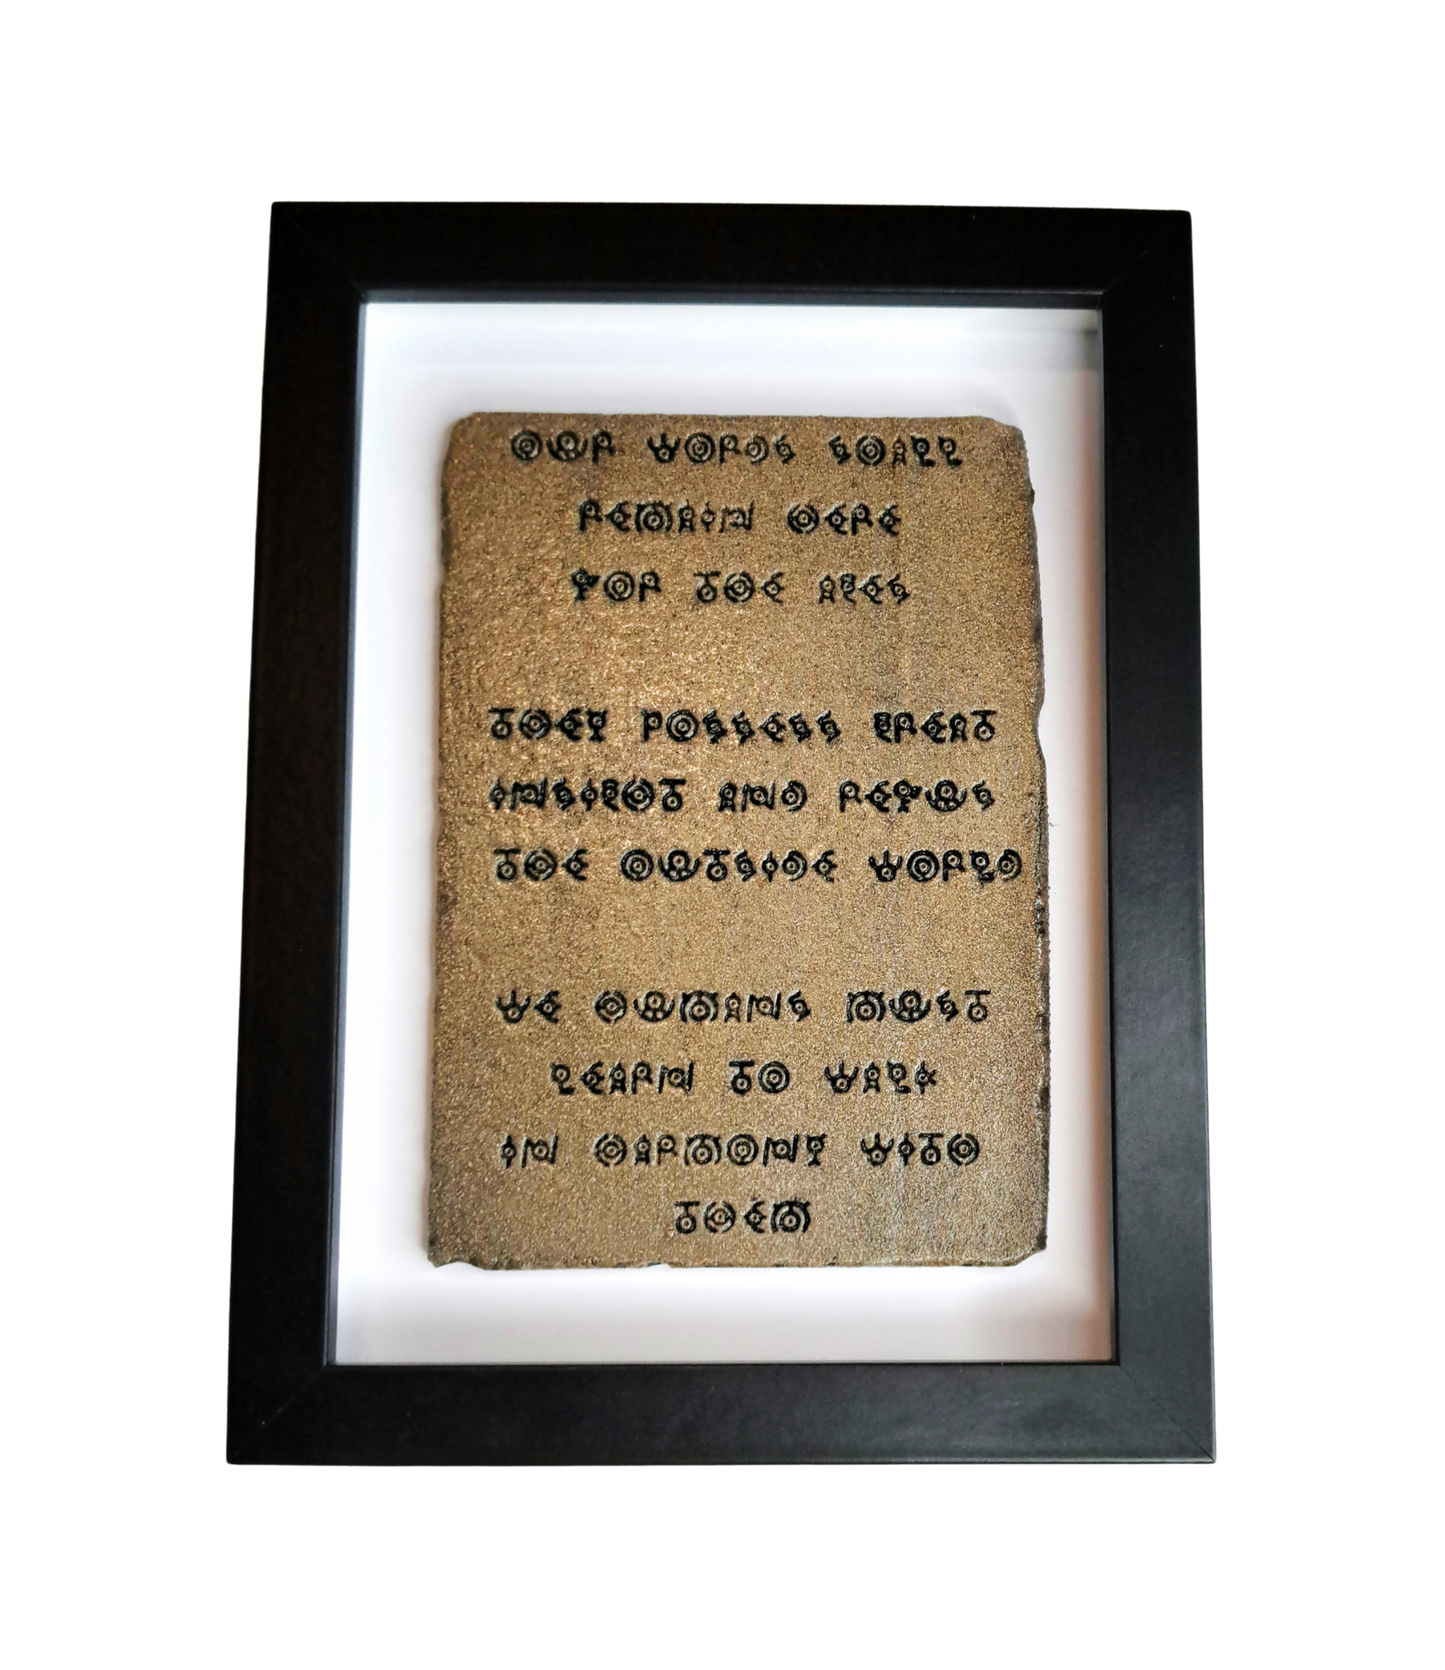 OUR WORDS SHALL
REMAIN HERE
FOR THE AGES
THEY POSSESS GREAT
INSIGHT AND REFUS
THE OUTSIDE WORLD
WE HUMANS MUST
LEARN TO WALK
IN HARMONY WITH
THEM